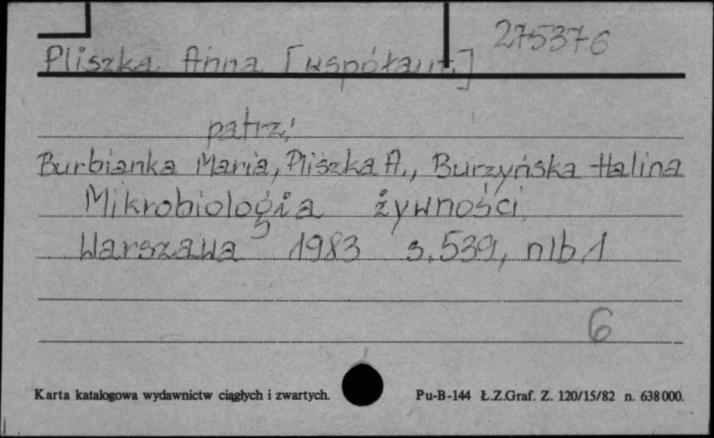 275376
Pliszka Anna [współaut.]
patrz:
Burbianka Maria, Pliszka A., Burzyńska Halina
Mikrobiologia żywności
Warszawa 1983 s. 539, nlb. 1
6
Karta katalogowa wydawnictw ciągłych i zwartych. Pu-B-144 Ł.Z.Graf. Z. 120/15/82 n. 638000.